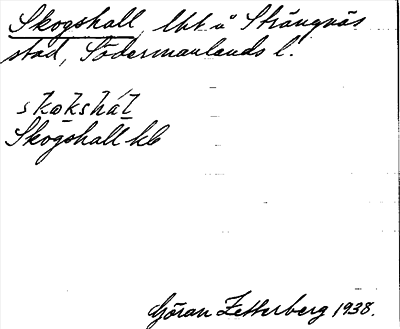 Skogshall, lht å Strängnäs
stad, Södermanlands l.
skokshál
Skogshall kb
Göran Zetterberg 1938.